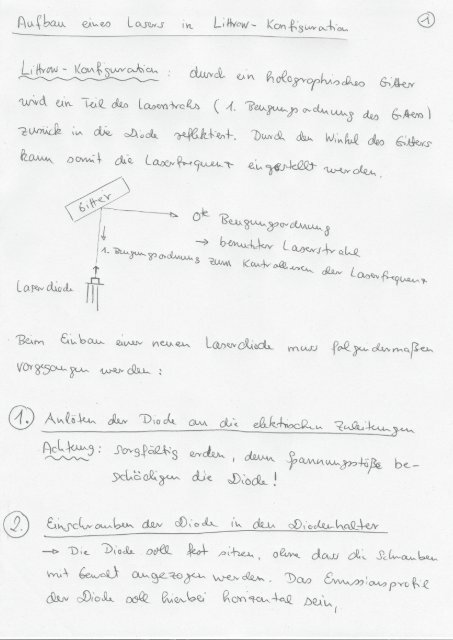 Aufbau eines Lasers in Littrow-Konfiguration
1
Littrow-Konfiguration: durch ein holographisches Gitter
wird ein Teil des Laserstrahls (1. Beugungsordnung des Gitters)
zurück in die Diode reflektiert. Durch den Winkel des Gitters
kann somit die Laserfrequenz eingestellt werden.
Gitter
0te Beugungsordnung
→ benutzter Laserstrahl
1. Beugungsordnung zum Kontrollieren der Laserfrequenz
Laserdiode
Beim Einbau einer neuen Laserdiode muss folgendermaßen
vorgegangen werden:
1. Anlöten der Diode an die elektrischen Zuleitungen
Achtung: Sorgfältig erden, denn Spannungsstöße be-
schädigen die Diode!
2. Einschrauben der Diode in den Diodenhalter
→ Die Diode soll fest sitzen, ohne dass die Schrauben
mit Gewalt angezogen werden. Das Emissionsprofil
der Diode soll hierbei horizontal sein,